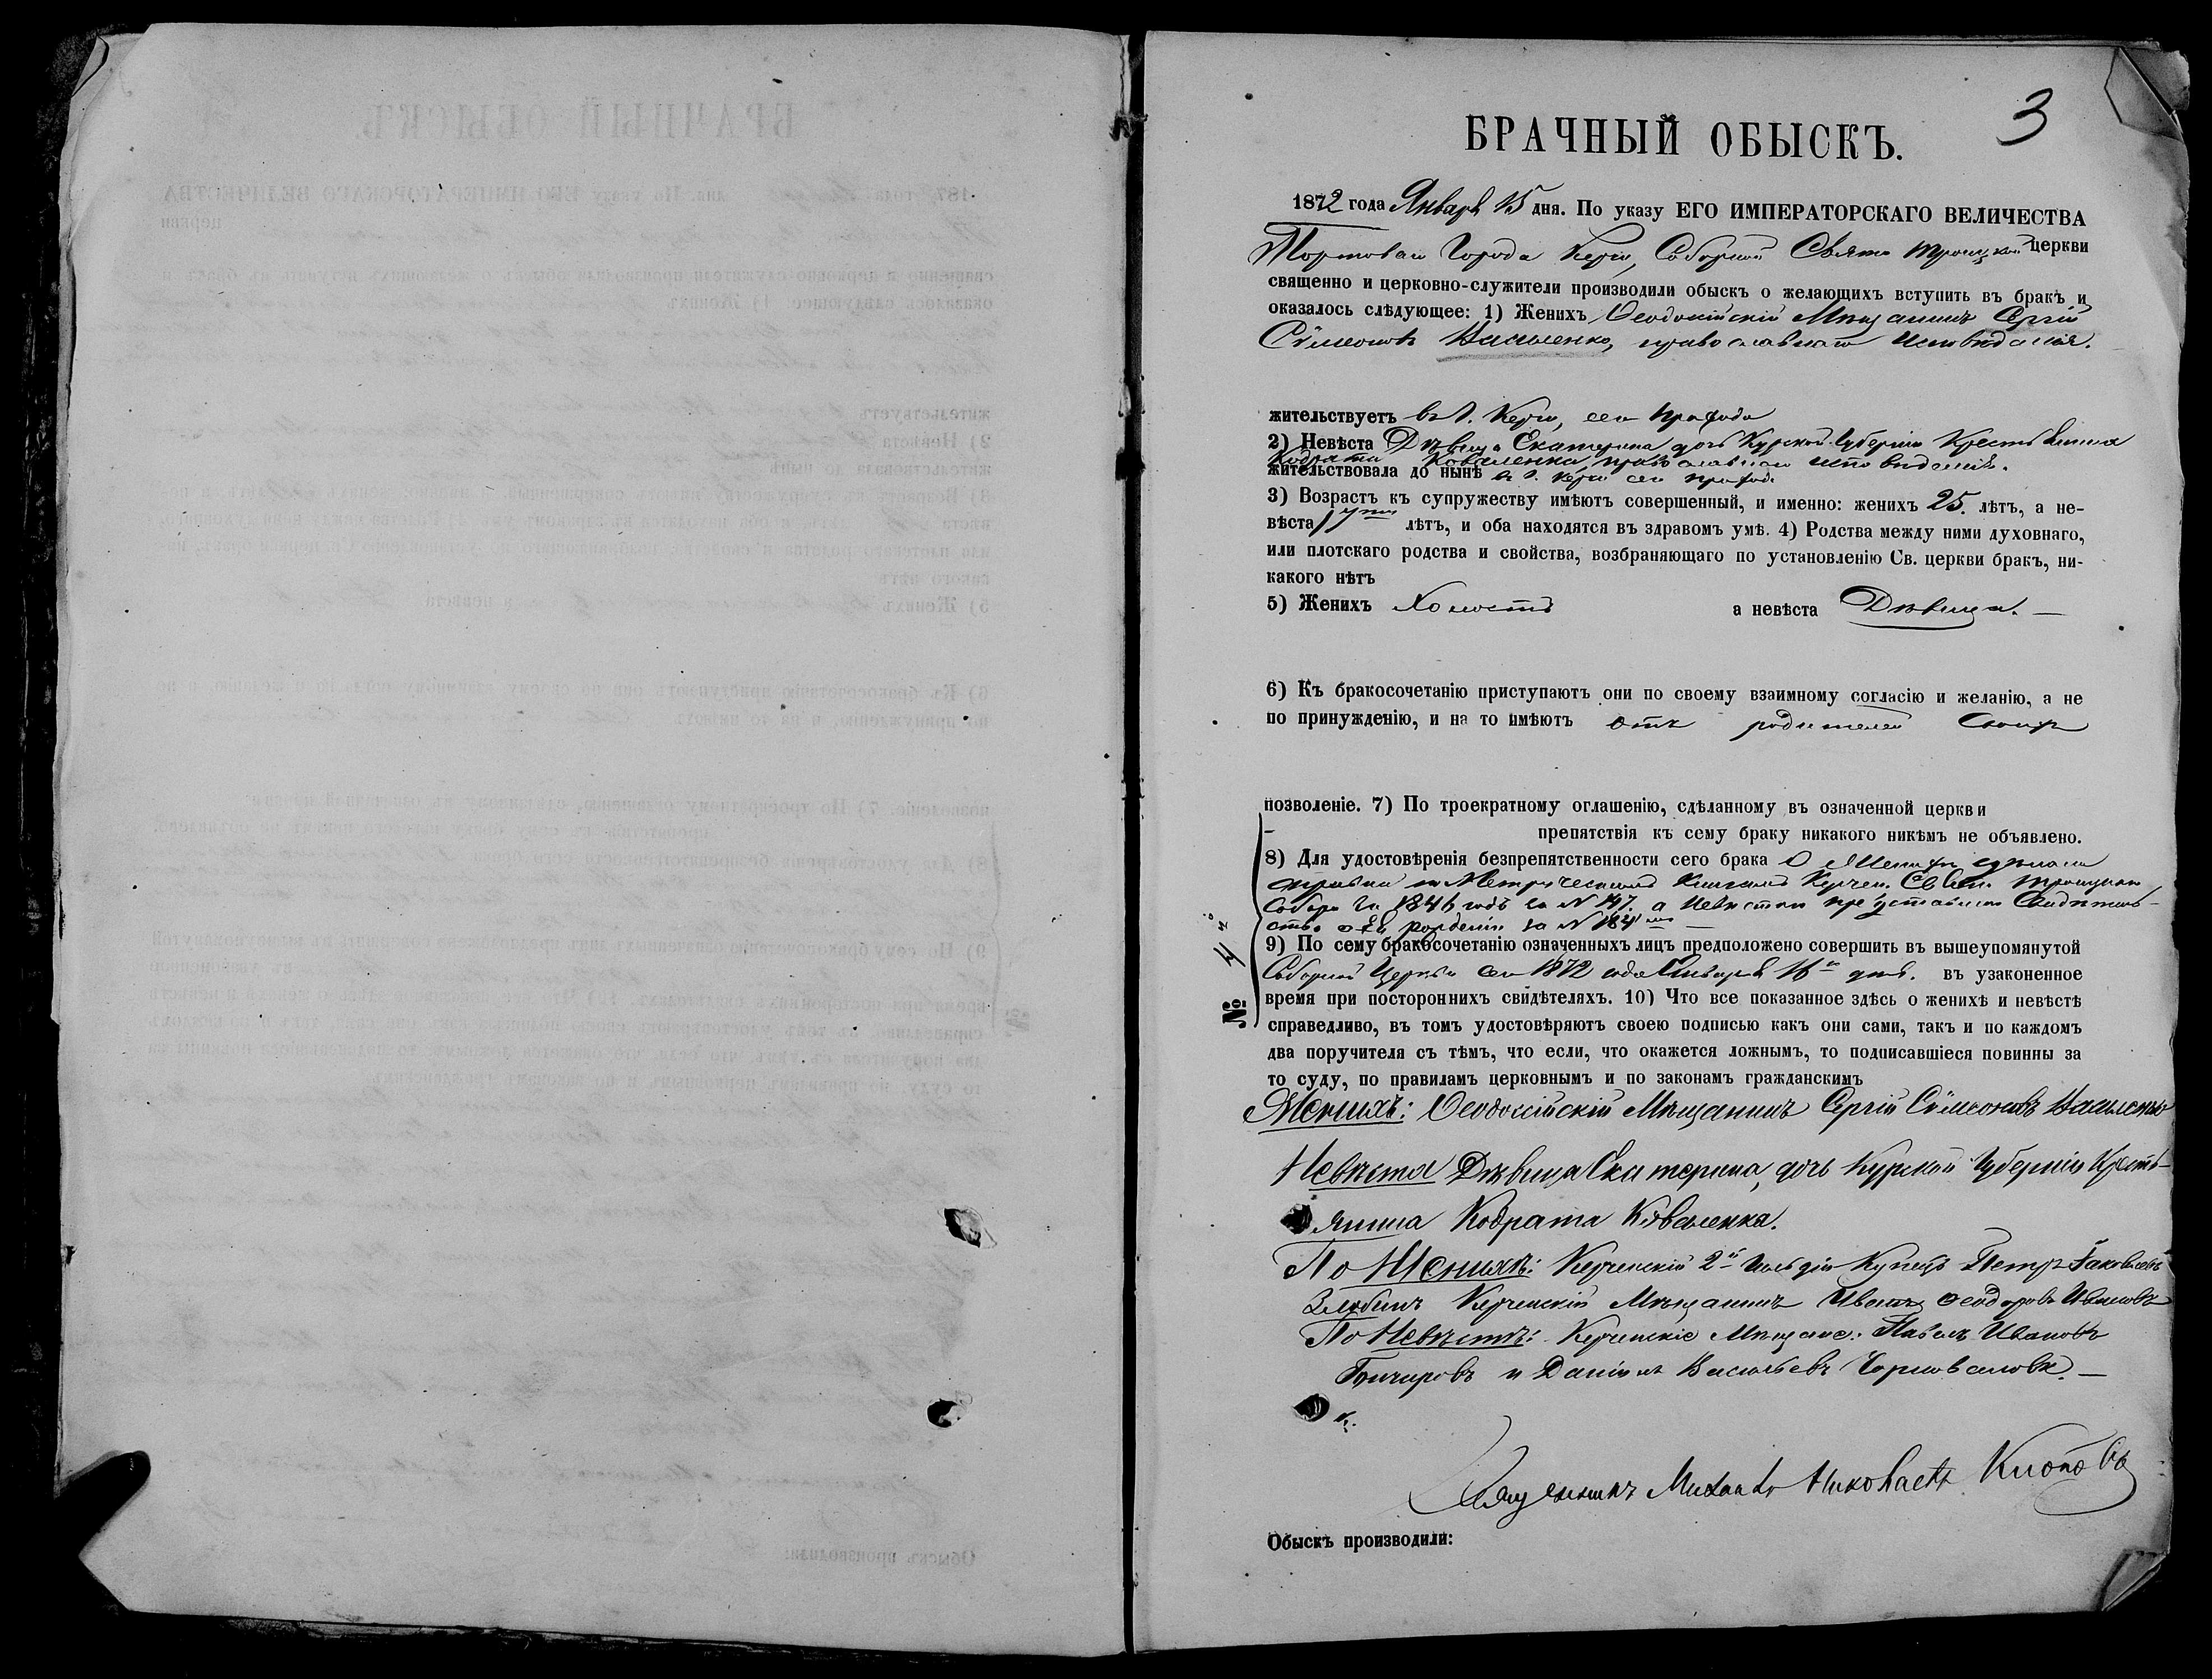 3
БРАЧНЫЙ ОБЫСКЪ.
1872 года Январь 15 дня. По указу ЕГО ИМПЕРАТОРСКАГО ВЕЛИЧЕСТВА
Города Керчи, Соборной Свято Троицкой церкви
священно и церковно-служители производили обыскъ о желающихъ вступить въ бракъ и
оказалось слѣдующее: 1) Женихъ Ѳеодосійскій Мѣщанинъ Сергій
Сѵмеоновъ Василенко, православнаго исповѣданія.
жительствуетъ въ г. Керчи, сего прихода
2) Невѣста Дѣвица Екатерина дочь Курской Губерніи Крестьянина
Кодрата Коваленка, православнаго исповѣданія.
жительствовала до нынѣ въ г. Керчи сего прихода
3) Возрастъ къ супружеству имѣютъ совершенный, и именно: женихъ 25. лѣтъ, а не-
вѣста 17ти лѣтъ, и оба находятся въ здравомъ умѣ. 4) Родства между ними духовнаго,
или плотскаго родства и свойства, возбраняющаго по установленію Св. церкви бракъ, ни-
какого нѣтъ
5) Женихъ Холостъ а невѣста Дѣвица. —
6) Къ бракосочетанію приступаютъ они по своему взаимному согласію и желанію, а не
по принужденію, и на то имѣютъ отъ родителей своихъ
позволеніе. 7) По троекратному оглашенію, сдѣланному въ означенной церкви
препятствія къ сему браку никакого никѣмъ не объявлено.
8) Для удостовѣренія безпрепятственности сего брака О Женихѣ сдѣлана
справка по Метрическимъ Книгамъ Керчен. Троицкаго
Собора за 1846 годъ за № 147. а Невѣстою представлено Свидѣтель-
ство о ея рожденіи за № 184
9) По сему бракосочетанію означенныхъ лицъ предположено совершить въ вышеупомянутой
Соборной Церкви сего 1872 года Января 16го дня. въ узаконенное
время при постороннихъ свидѣтеляхъ. 10) Что все показанное здѣсь о женихѣ и невѣстѣ
справедливо, въ томъ удостовѣряютъ своею подписью какъ они сами, такъ и по каждомъ
два поручителя съ тѣмъ, что если, что окажется ложнымъ, то подписавшіеся повинны за
то суду, по правиламъ церковнымъ и по законамъ гражданскимъ
№ 4й
Женихъ: Ѳеодосійскій Мѣщанинъ Сергій Сѵмеоновъ Василенко
Невѣста Дѣвица Екатерина, дочь Курской Губерніи Кресть-
янина Кодрата Коваленка.
По Женихѣ: Керченскій 2й Гильдіи Купецъ Петръ Іаковлевъ
Злобинъ Керченскій Мѣщанинъ Иванъ Ѳеодоровъ Ивановъ
По Невѣстѣ: Керченскіе Мѣщане: Павелъ Ивановъ
Гончаровъ и Даніилъ Васильевъ —
Михаилъ Николаевъ
Обыскъ производили: